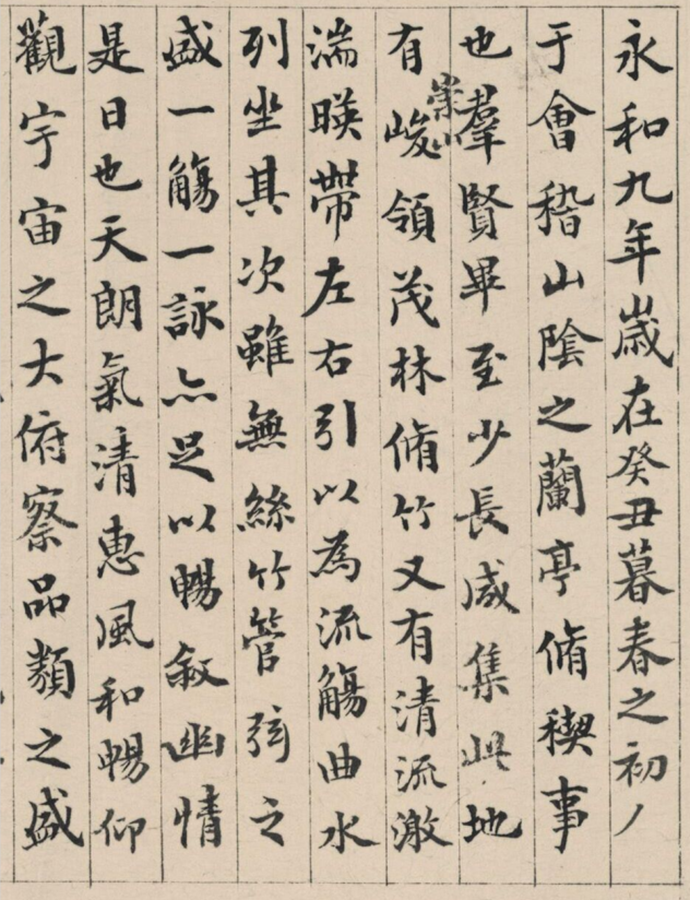 永和九年歲在癸丑暮春之初
于會稽山陰之蘭亭脩稧事
也羣賢畢至少長咸集此地
有崇山峻領茂林脩竹又有清流激
湍暎帶左右引以為流觴曲水
列坐其次雖無絲竹管弦之
盛一觴一詠亦足以暢叙幽情
是日也天朗氣清惠風和暢仰
觀宇宙之大俯察品類之盛